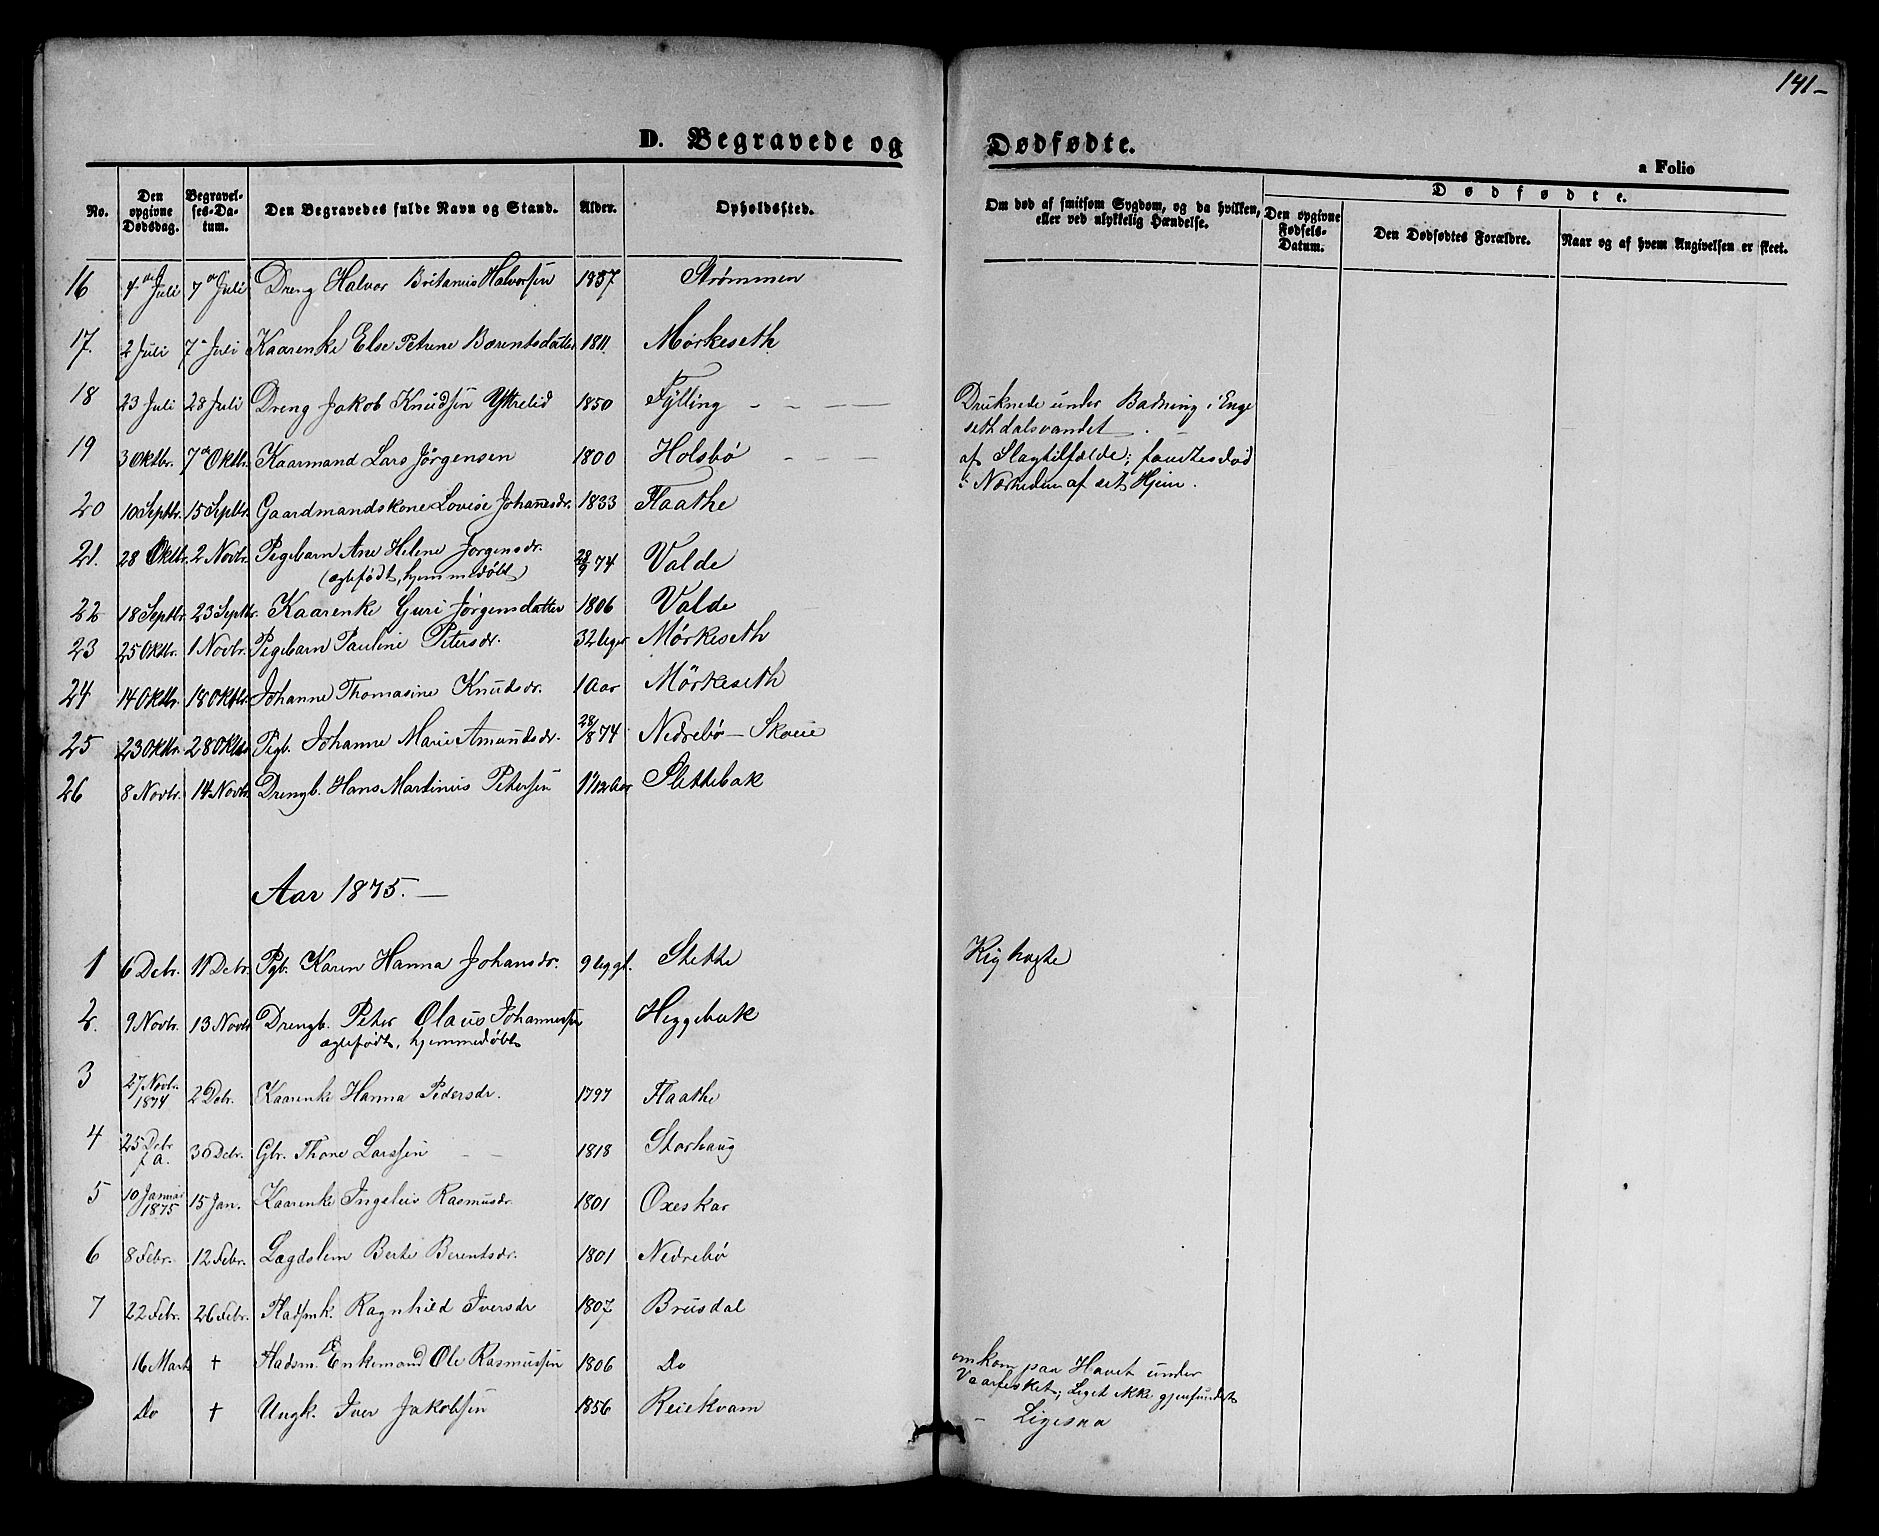 141-
D. Begravede og Dødfødte.
a Folio
No.
Den opgivne Dødsdag.
Begravelses-Datum.
Den Begravedes fulde Navn og Stand.
Alder.
Opholdssted.
Om død af smitsom Sygdom, og da hvilken, eller ved ulykkelig Hændelse.
Dødfødte.
Den opgivne Fødsels-Datum.
Den Dødfødtes Forældre.
Naar og af hvem Angivelsen er skeet.
16 4de Juli 7de Juli Dreng Halvor Halvorsen Strømmen
17. 2 Juli 7de Juli Kaarenke Else Petrine Berentsdatter 1811. Mørkeseth
18 23 Juli 28 Juli Dreng Jakob Knudsen Yttrelid 1850 Fylling - - - — Druknede under Badning i Enge
sethdalsvandet.
19 3 Oktbr. 7de Oktbr. Kaarmand Lars Jørgensen 1800 Holsbø - - — af Slagtilfælde; fandtes død
i Nærheden af sit Hjem.
20 10 Septbr. 15 Septbr. Gaardmandskone Lovise Johannesdr. 1833 Flaathe
21. 28 Oktbr. 2 Novbr. Pigebarn Ane Helene Jørgensdr. 28/9 74 Valde
(ægtefødt, hjemmedøbt)
22 18 Septbr. 23 Septbr. Kaarenke Guri Jørgensdatter 1806 Valde
23 25 Oktbr. 1 Novbr. Pigebarn Pauline Petersdr. 32 Uger Mørkeseth
24 14 Oktbr. 18 Oktbr. Johanne Thomasine Knudsdr. 1 Aar Mørkeseth
25 23 Oktbr. 28 Oktbr. Pigb. Johanne Marie Amundsdr. 28/8 74 Nedrebø - Skoue
26 8 Novbr. 14 Novbr. Drengb. Hans Martinus Petersen 1 1/12 Aar Slettebak
Aar 1875. —
1 6 Debr. 11 Debr. Pgb. Karen Hanna Johansdr. 9 Stette Kighoste
2. 9 Novbr. 13 Novbr. Drengb. Peter Olaus Johannessen Heggebak
ægtefødt, hjemmedøbt
3 27 Novbr. 1874 2 Debr. Kaarenke Hanna Pedersdr. 1797 Flaathe
4 25 Debr. f. A. 30 Debr. Gbr. Thone Larssen - - 1818 Storhaug
5 10 Januar 1875 15 Jan. Kaarenke Ingeleiv Rasmusdr. 1801 Oxeskar
6 8 Febr. 12 Febr. Lægdslem Berte Berentsdr. 1801 Nedrebø
7 22 Febr. 26 Febr. Pladsmk. Ragnhild Iversdr 1807 Brusdal
16 Marts † Pladsm. & Enkemand Ole Rasmussen 1806 Do omkom paa Havet under
Vaarfisket; Liget ikke gjenfundet
Do † Ungk. Iver Jakobsen 1856 Reiekvam - Ligesaa